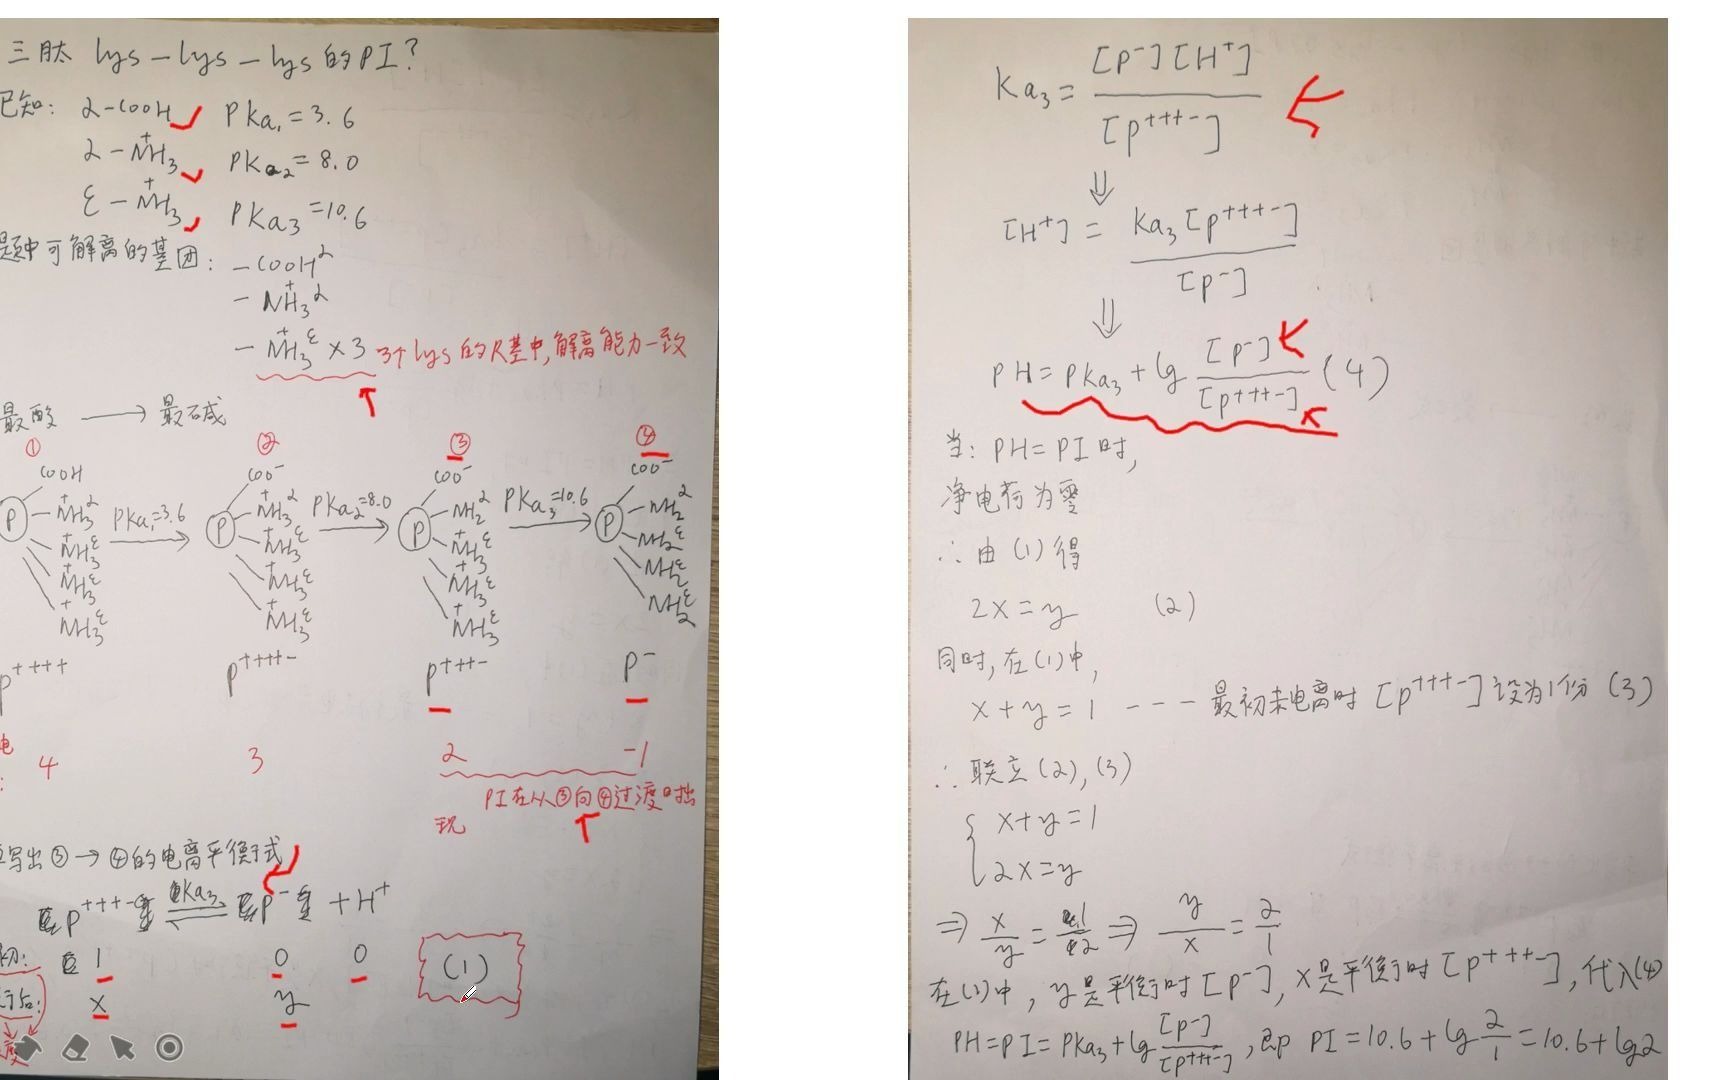 三肽 lys — lys — lys 的PI?
已知: α-COOH PKa₁ = 3.6
α - N⁺H₃ PKa₂ = 8.0
ε - N⁺H₃ PKa₃ = 10.6
题中可解离的基团: - COOH^α
- N⁺H₃^α
- N⁺H₃^ε × 3 3个lys的R基中,解离能力一致
最酸 → 最碱
① ② ③ ④
COOH COO⁻ COO⁻ COO⁻
P N⁺H₃^α PKa₁=3.6 P N⁺H₃^α PKa₂=8.0 P NH₂^α PKa₃=10.6 P NH₂^α
N⁺H₃^ε N⁺H₃^ε N⁺H₃^ε NH₂^ε
N⁺H₃^ε N⁺H₃^ε N⁺H₃^ε NH₂^ε
N⁺H₃^ε N⁺H₃^ε N⁺H₃^ε NH₂^ε
P⁺⁺⁺⁺ P⁺⁺⁺⁺⁻ P⁺⁺⁺⁻ P⁻
电
: 4 3 2 -1
PI在从③向④过渡时出
现
写出③→④的电离平衡式
P⁺⁺⁺⁻ ⇌ Ka₃ P⁻ + H⁺
初: 1 0 0 (1)
衡后: x y
度
Ka₃ = [P⁻][H⁺] / [P⁺⁺⁺⁻]
⇓
[H⁺] = Ka₃[P⁺⁺⁺⁻] / [P⁻]
⇓
PH = PKa₃ + lg [P⁻] / [P⁺⁺⁺⁻] (4)
当: PH = PI 时,
净电荷为零
∴ 由(1)得
2x = y (2)
同时,在(1)中,
x + y = 1 - - - 最初未电离时[P⁺⁺⁺⁻]设为1份 (3)
∴ 联立(2),(3)
{ x+y = 1
2x = y
⇒ x/y = 1/2 ⇒ y/x = 2/1
在(1)中, y是平衡时[P⁻], x是平衡时[P⁺⁺⁺⁻],代入(4)
PH = PI = PKa₃ + lg [P⁻]/[P⁺⁺⁺⁻] , 即 PI = 10.6 + lg 2/1 = 10.6 + lg2